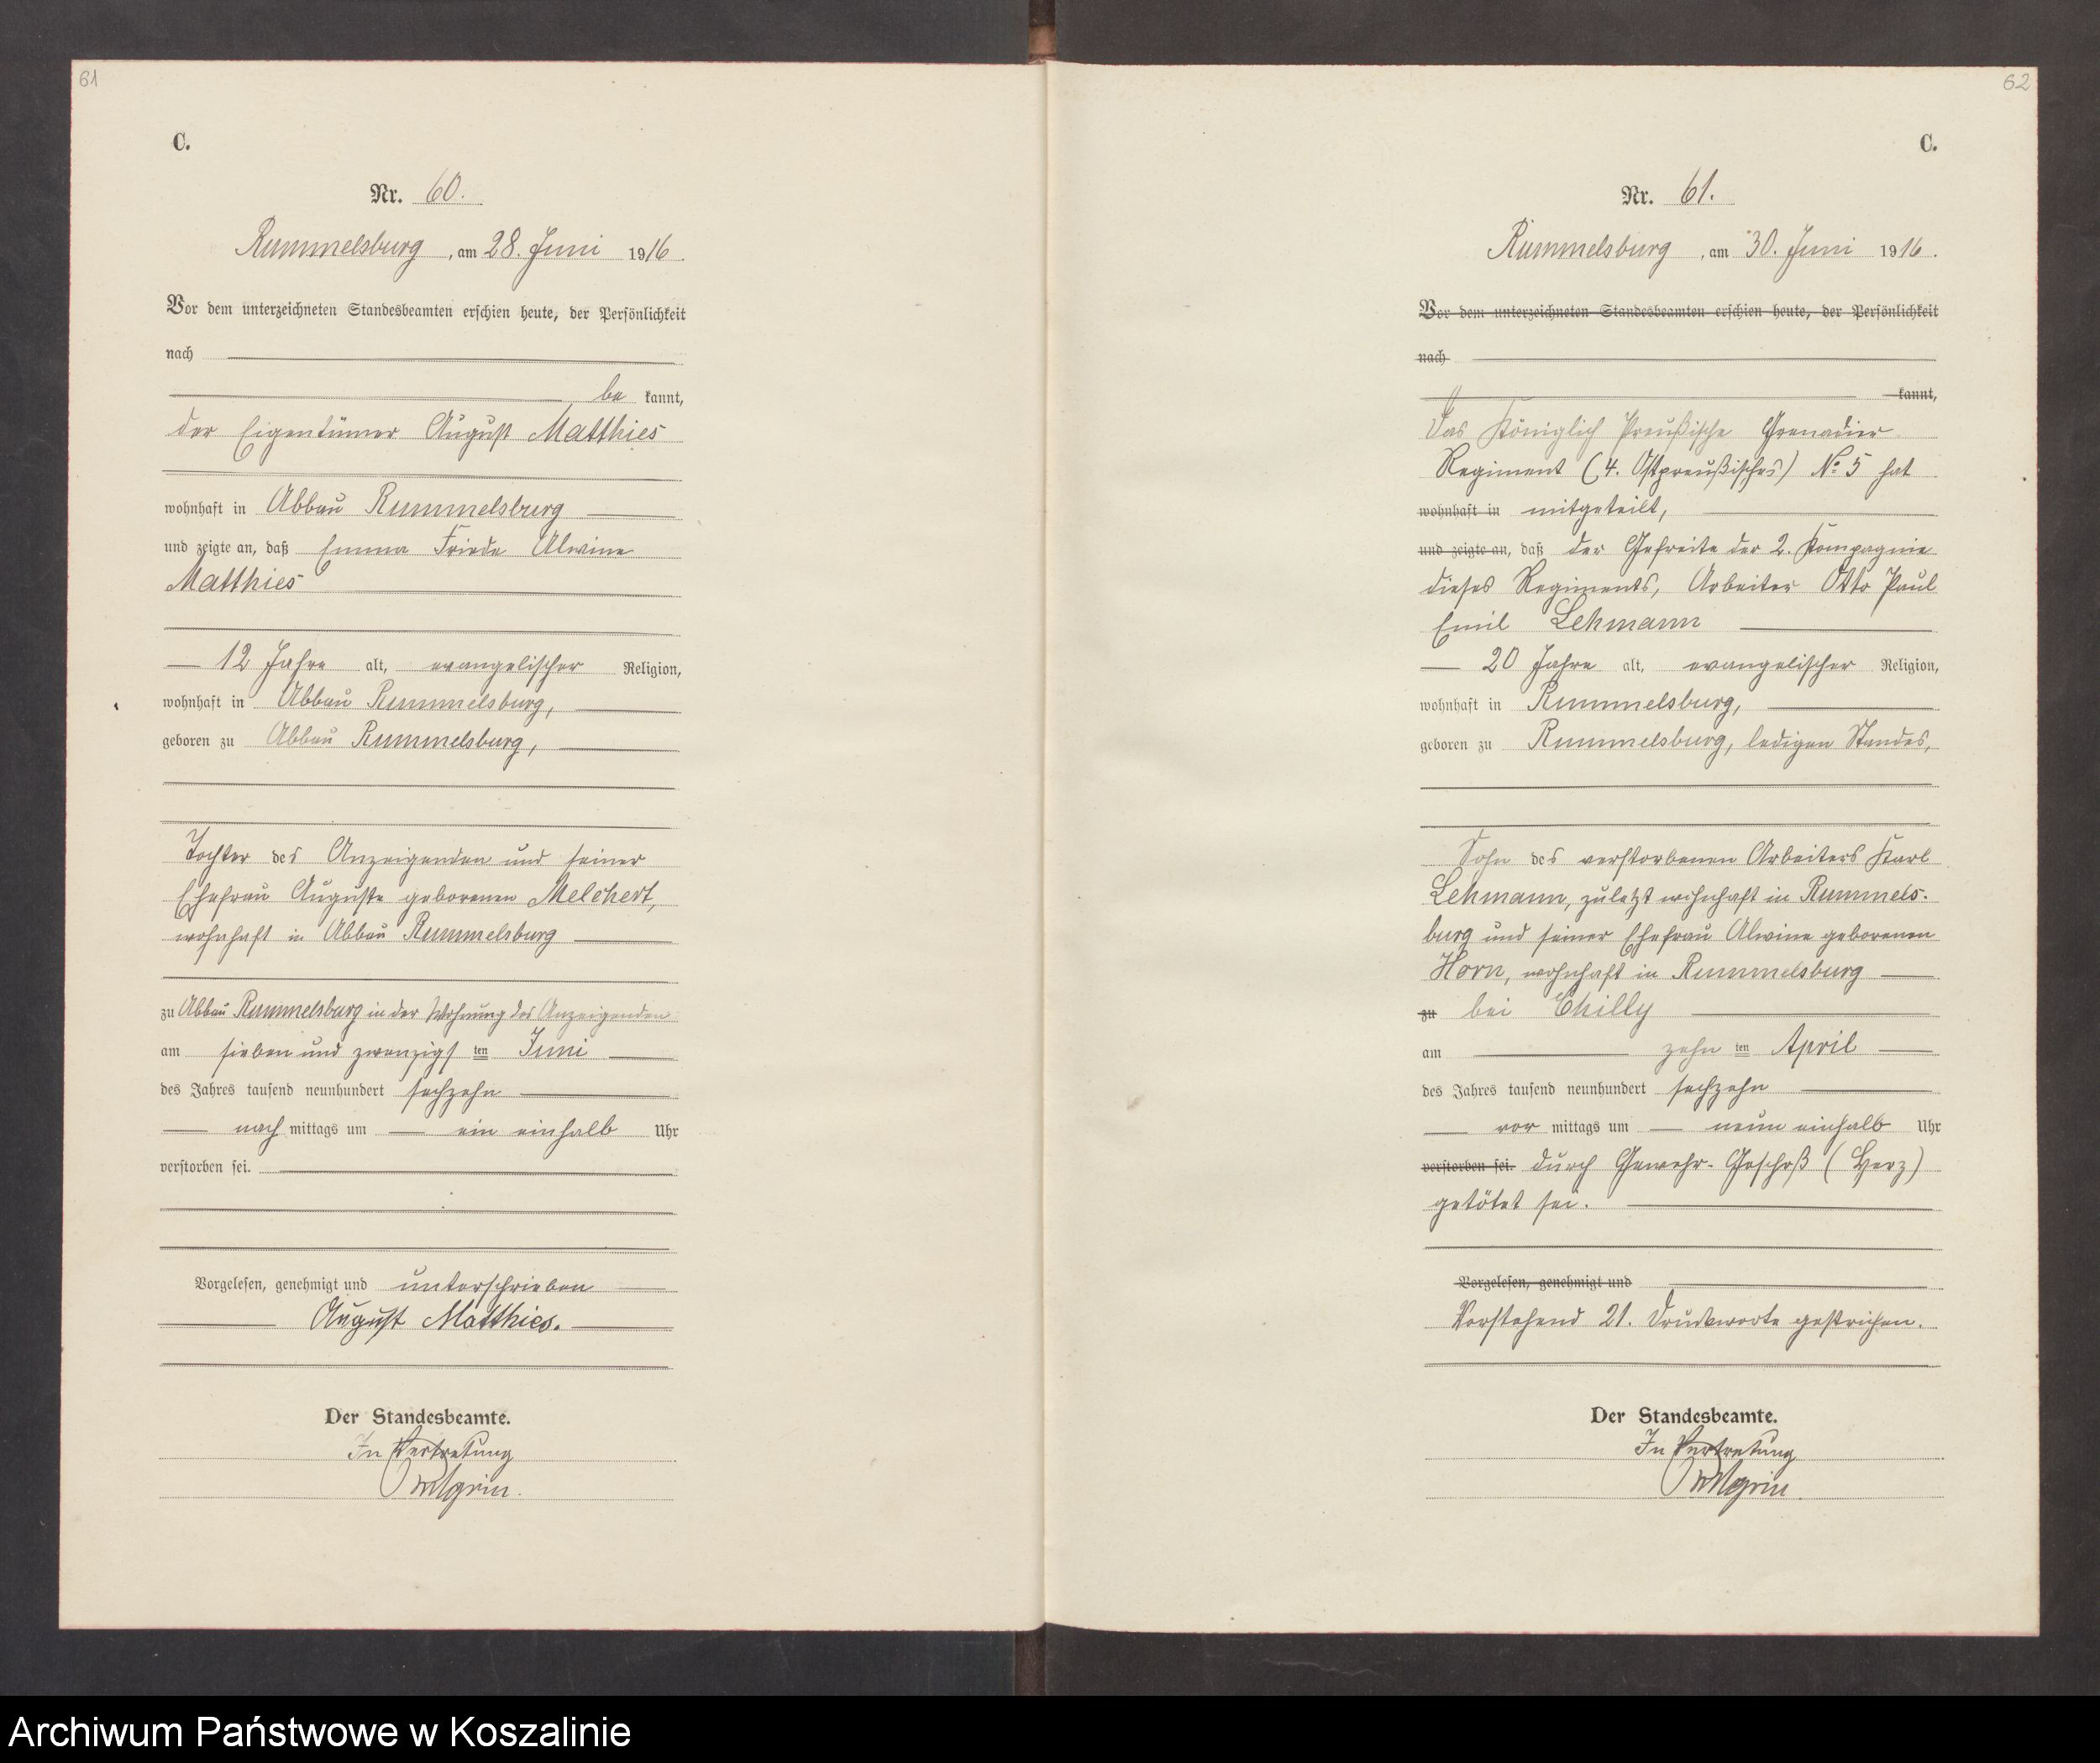 61
C.
Nr. 60.
Rummelsburg, am 28. Juni 1916.
Vor dem unterzeichneten Standesbeamten erschien heute, der Persönlichkeit
nach
be kannt,
der Eigentümer August Matthies
wohnhaft in Abbau Rummelsburg
und zeigte an, daß Emma Frieda Alwine
Matthies
12 Jahre alt, evangelischer Religion,
wohnhaft in Abbau Rummelsburg,
geboren zu Abbau Rummelsburg,
Tochter des Anzeigenden und seiner
Ehefrau Auguste geborenen Melchert,
wohnhaft in Abbau Rummelsburg
zu Abbau Rummelsburg in der Wohnung des Anzeigenden
am sieben und zwanzigsten Juni
des Jahres tausend neunhundert sechzehn
nach mittags um ein einhalb Uhr
verstorben sei.
Vorgelesen, genehmigt und unterschrieben
August Matthies.
Der Standesbeamte.
In Vertretung
62
C.
Nr. 61.
Rummelsburg, am 30. Juni 1916.
Vor dem unterzeichneten Standesbeamten erschien heute, der Persönlichkeit
nach
kannt,
Das Königlich Preußische Grenadier
Regiment (4. Ostpreußisches) No 5 hat
wohnhaft in mitgeteilt,
und zeigte an, daß der Gefreite der 2. Kompagnie
dieses Regiments, Arbeiter Otto Paul
Emil Lehmann
20 Jahre alt, evangelischer Religion,
wohnhaft in Rummelsburg,
geboren zu Rummelsburg, ledigen Standes,
Sohn des verstorbenen Arbeiters Karl
Lehmann, zuletzt wohnhaft in Rummels-
burg und seiner Ehefrau Alwine geborenen
Horn, wohnhaft in Rummelsburg
zu bei Chilly
am zehnten April
des Jahres tausend neunhundert sechzehn
vor mittags um neun einhalb Uhr
verstorben sei. durch Gewehr-Geschoß (Herz)
getötet sei.
Vorgelesen, genehmigt und
Vorstehend 21. Druckworte gestrichen.
Der Standesbeamte.
In Vertretung
Archiwum Państwowe w Koszalinie